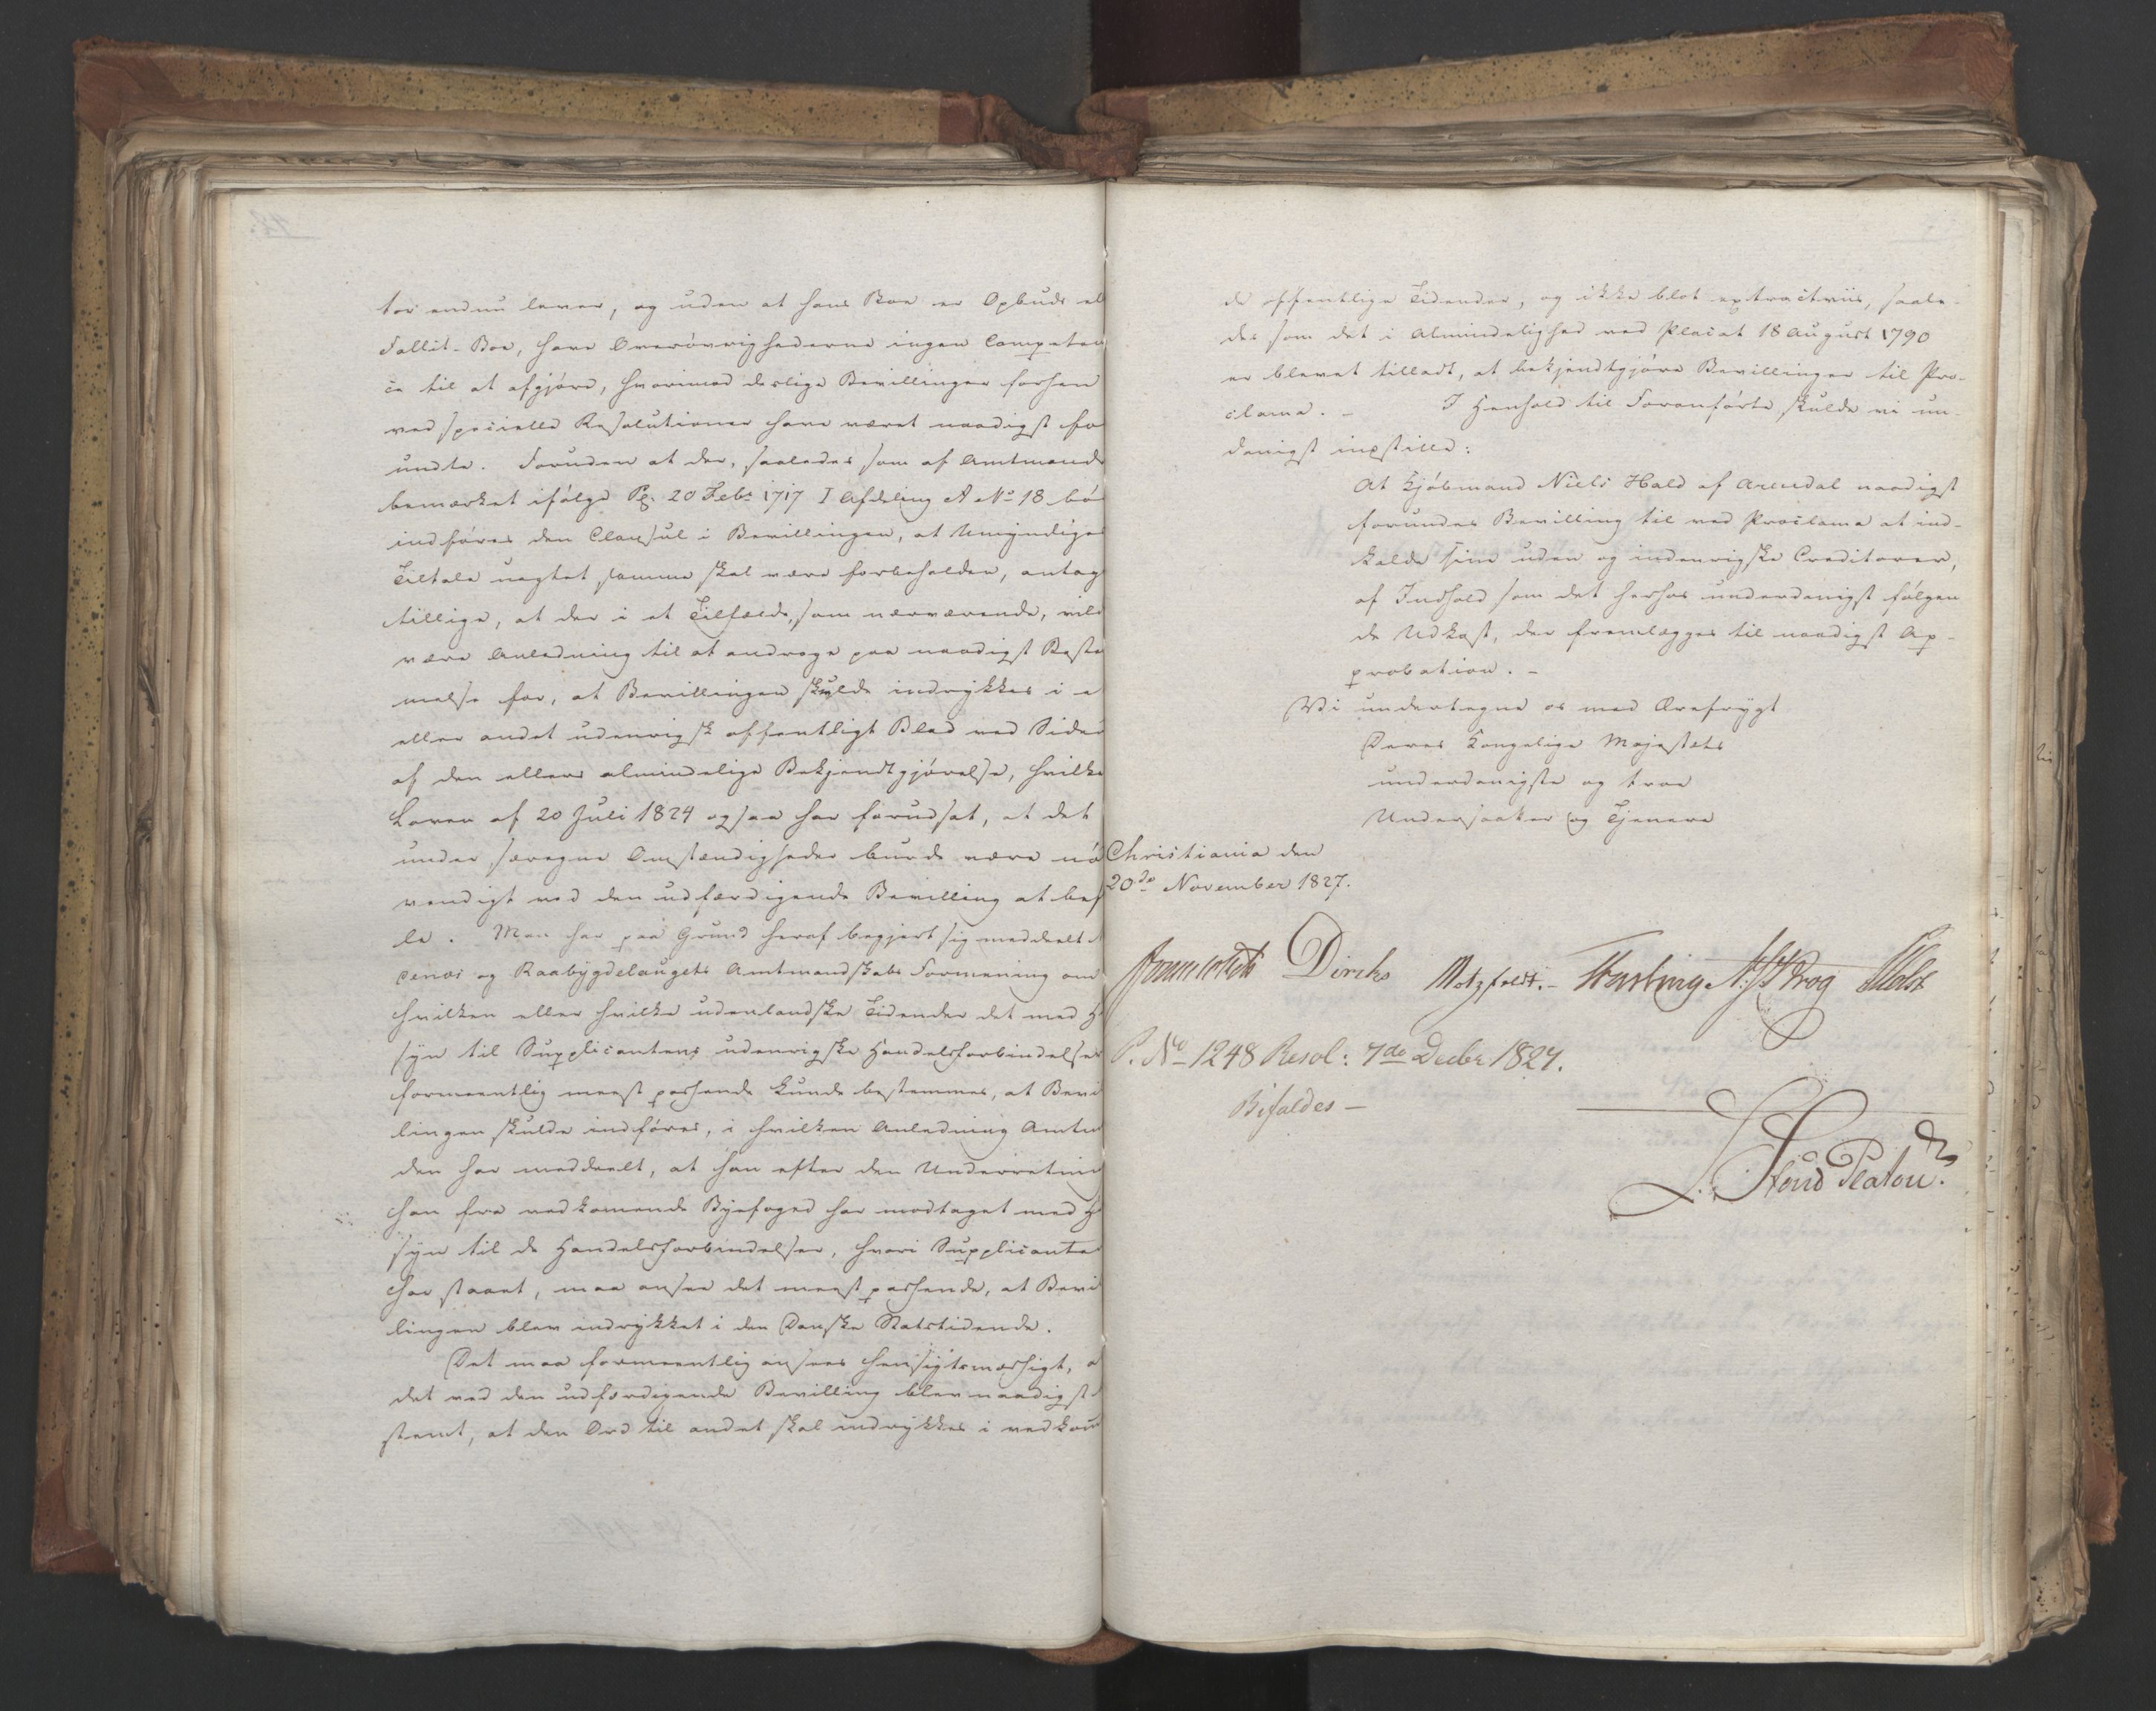 tor endnu lever, og uden at hans Boe er Opbuds el
Fallit-Boe, have Overøvrighederne ingen Competen
ce til at afgjøre, hvorimod deslige Bevillinger forhen
ved specielle Resolutioner have været naadigst for
undte. Foruden at der, saaledes som af Amtmand
bemærket ifølge Pg. 20 Febr 1717 I Afdeling A No 18 bø
indføres den Clausul i Bevillingen, at Umyndiges
Tiltale uagtet samme skal være forbeholden, antag
tillige, at der i et Tilfælde, som nærværende, vild
være Anledning til at andrage paa naadigst Beste
melse for, at Bevillingen skulde indrykkes i e
eller andet udenrigsk offentligt Blad ved Siden
af den ellers almindelige Bekjendtgjørelse, hvilke
Loven af 20 Juli 1824 ogsaa har forudsat, at det
under særegne Omstændigheder burde være nø
vendigt ved den udfærdigende Bevilling at bef
le. Man har paa Grund heraf begjert sig meddeelt
denæs og Raabygdelaugets Amtmandskabs Formening om
hvilken eller hvilke udenlandske Tidender det med H
syn til Supplicantens udenrigske Handelsforbindelser
formeentlig meest passende kunde bestemmes, at Bevil
lingen skulde indføres, i hvilken Anledning Amtm
den har meddeelt, at han efter den Underretning
han fra vedkomende Byefoged har modtaget med H
syn til de Handelsforbindelser, hvori Supplicante
har staaet, maa ansee det meest passende, at Bevil
lingen blev indrykket i den Danske Statstidende.
Det maa formeentlig ansees hensigtsmæssigt, a
det ved den udfærdigende Bevilling blev naadigst
stemt, at den Ord til andet skal indrykkes i vedkom
de offentlige Tidender, og ikke blot extractviis, saale-
des som det i Almindelighed ved Placat 18 August 1790
er blevet tilladt, at bekjendtgjøre Bevillinger til Pro-
clama. - I Henhold til Foranførte skulde vi un-
danigst indstille:
At Kjøbmand Niels Hald af Arendal naadigst
forundes Bevilling til ved Proclama at ind-
kalde sine uden og indenrigske Creditorer,
af Indhold som det herhos underdanigst følgen
de Udkast, der fremlægges til naadigst Ap-
probation. -
Vi undertegne os med Ærefrygt
Deres Kongelige Majestæts
underdanigste og troe
Undersaatter og Tjenere
Christiania den
20de November 1827.
Diriks Motzfeldt.- Krog Holst
P. No 1248 Resol: 7de Decbr 1827.
Bifaldes -